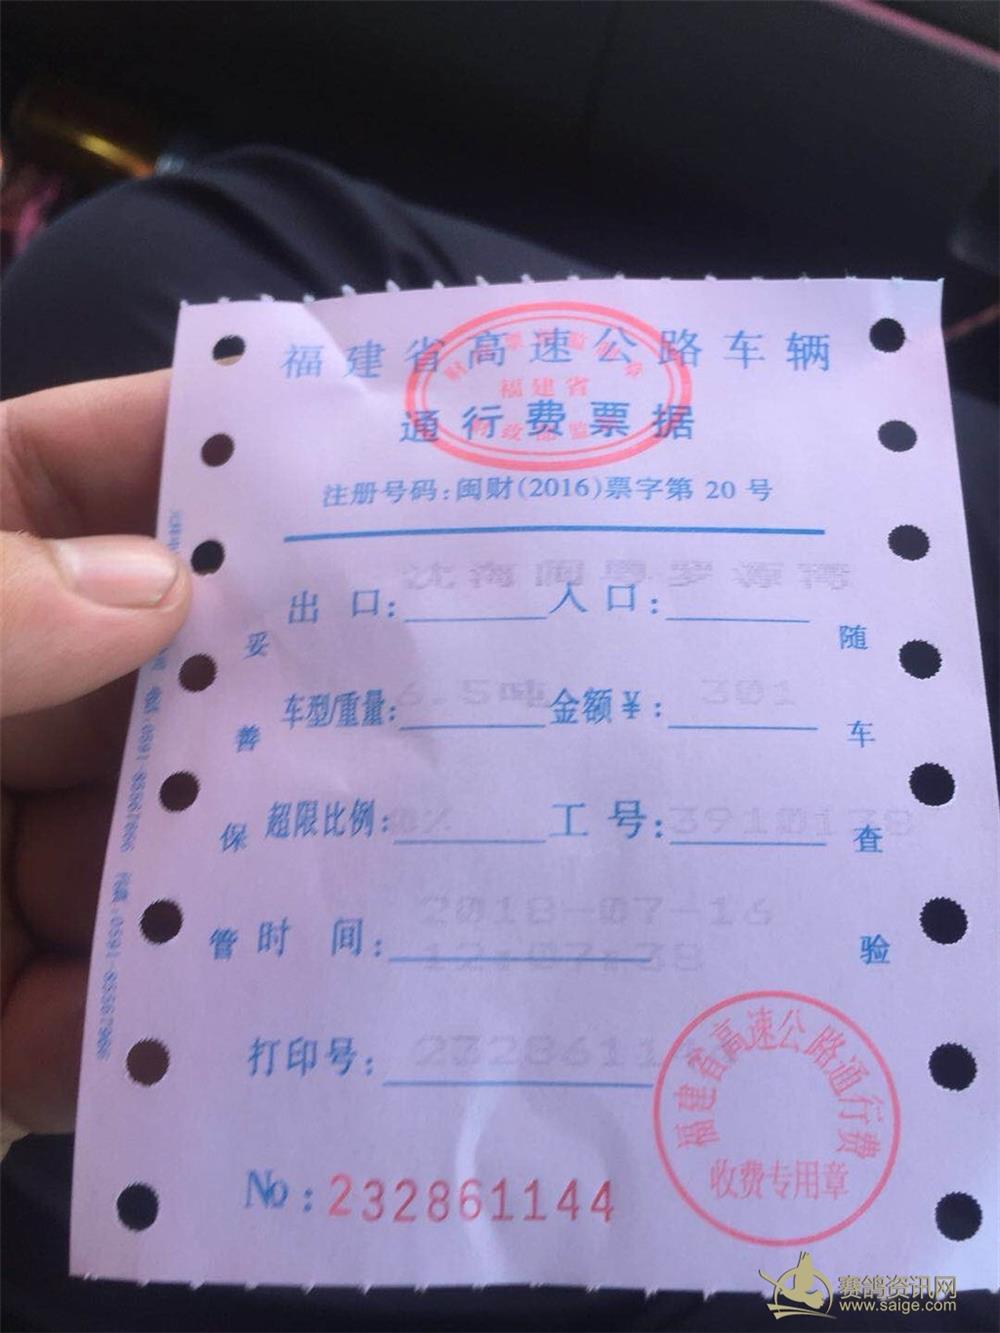 福建省高速公路车辆
通行费票据
福建省
注册号码:闽财(2016)票字第 20 号
沈海闽粤罗源湾
出口: 入口:
6.5吨 301
车型/重量: 金额¥:
超限比例: 0% 工号: 3910138
2018-07-16
时间: 12:07:38
打印号:
No: 232861144
妥善保管
随车查验
福建省高速公路通行费
收费专用章
赛鸽资讯网
www.saige.com